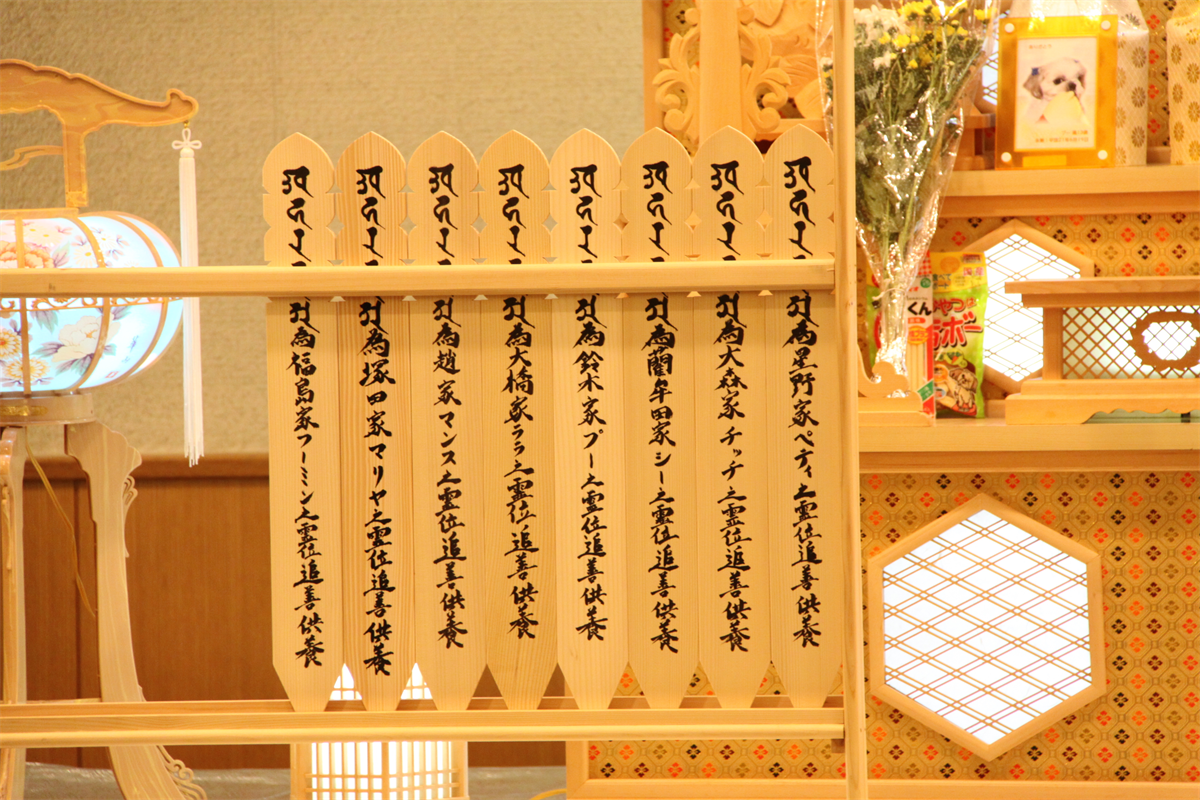 為星野家ペティ之霊位追善供養
為大森家チッチ之霊位追善供養
為藺牟田家シー之霊位追善供養
為鈴木家プー之霊位追善供養
為大橋家ララ之霊位追善供養
為趙家マンス之霊位追善供養
為塚田家マリヤ之霊位追善供養
為福島家フーミン之霊位追善供養
くん
ボー